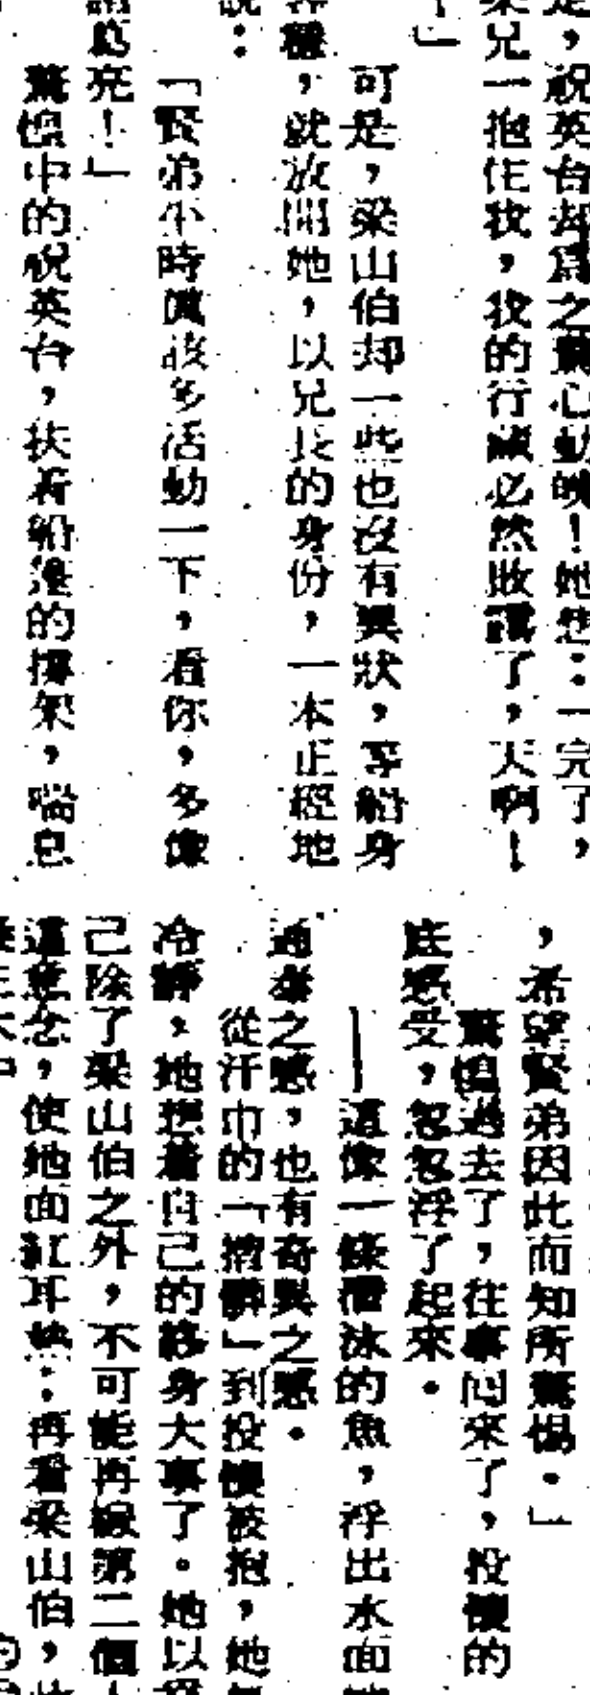 是，祝英台却爲之驚心動魄！她想：一完了，
梁兄一抱住我，我的行藏必然敗露了，天啊！
！」
可是，梁山伯却一些也沒有異狀，等船身
穩，就放開她，以兄長的身份，一本正經地
說：
「賢弟小時候該多活動一下，看你，多像
諸葛亮！」
驚惶中的祝英台，扶着船邊的撐架，喘息
，希望賢弟因此而知所驚惕。」
驚惶過去了，往事回來了，投懷的
感受，忽忽浮了起來。
——這像一條潛泳的魚，浮出水面
之感，也有奇異之感。
從汗巾的「」到投懷被抱，她
冷靜，她想着自己的終身大事了。她以
己除了梁山伯之外，不可能再嫁第二個人
這意念，使她面紅耳熱；再看梁山伯，